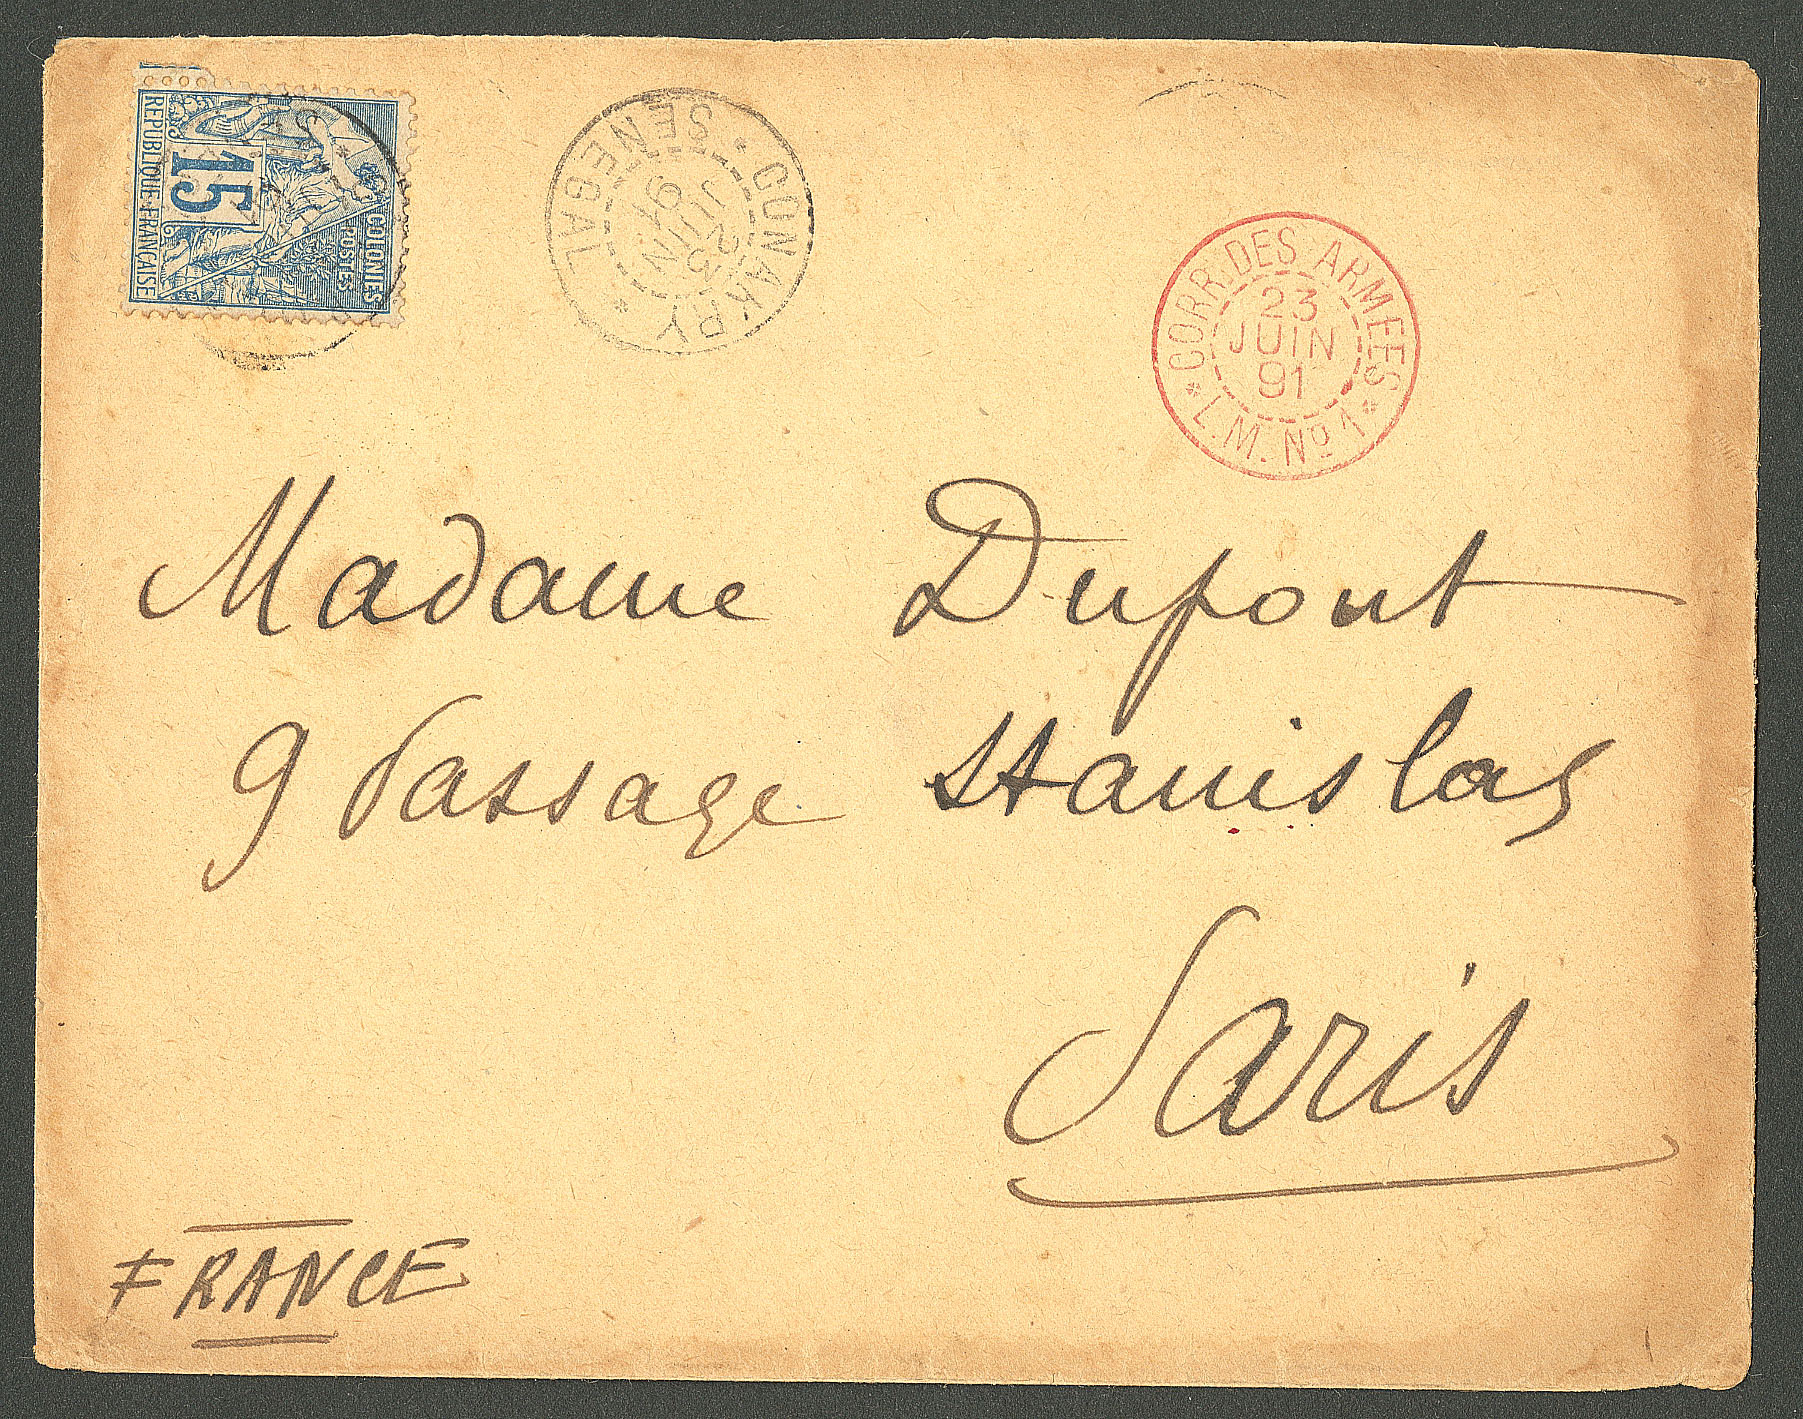 COLONIES
POSTES
15
REPUBLIQUE FRANÇAISE
* CONAKRY *
SENEGAL
23
JUIN
91
* CORR. DES ARMEES *
23
JUIN
91
L.M. No 1
Madame Dupont
9 Passage Stanislas
Paris
FRANCE